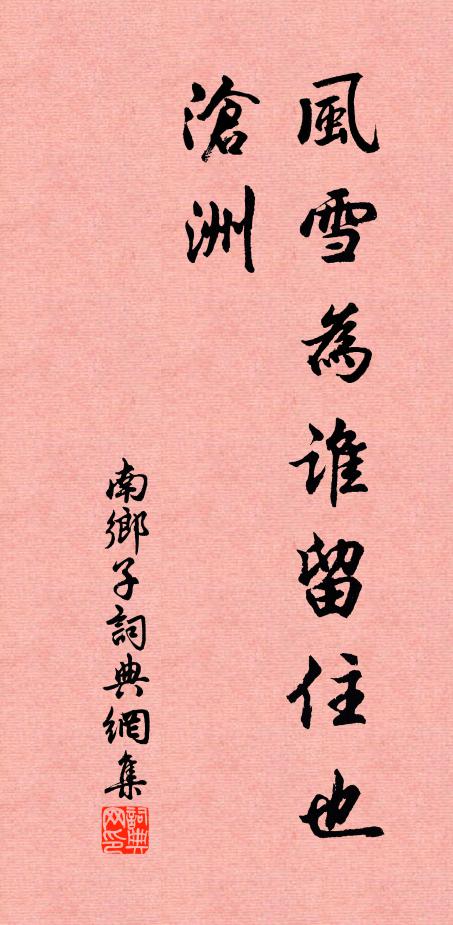 風雪為誰留住也
滄洲
南鄉子詞典網集
詞典
网印